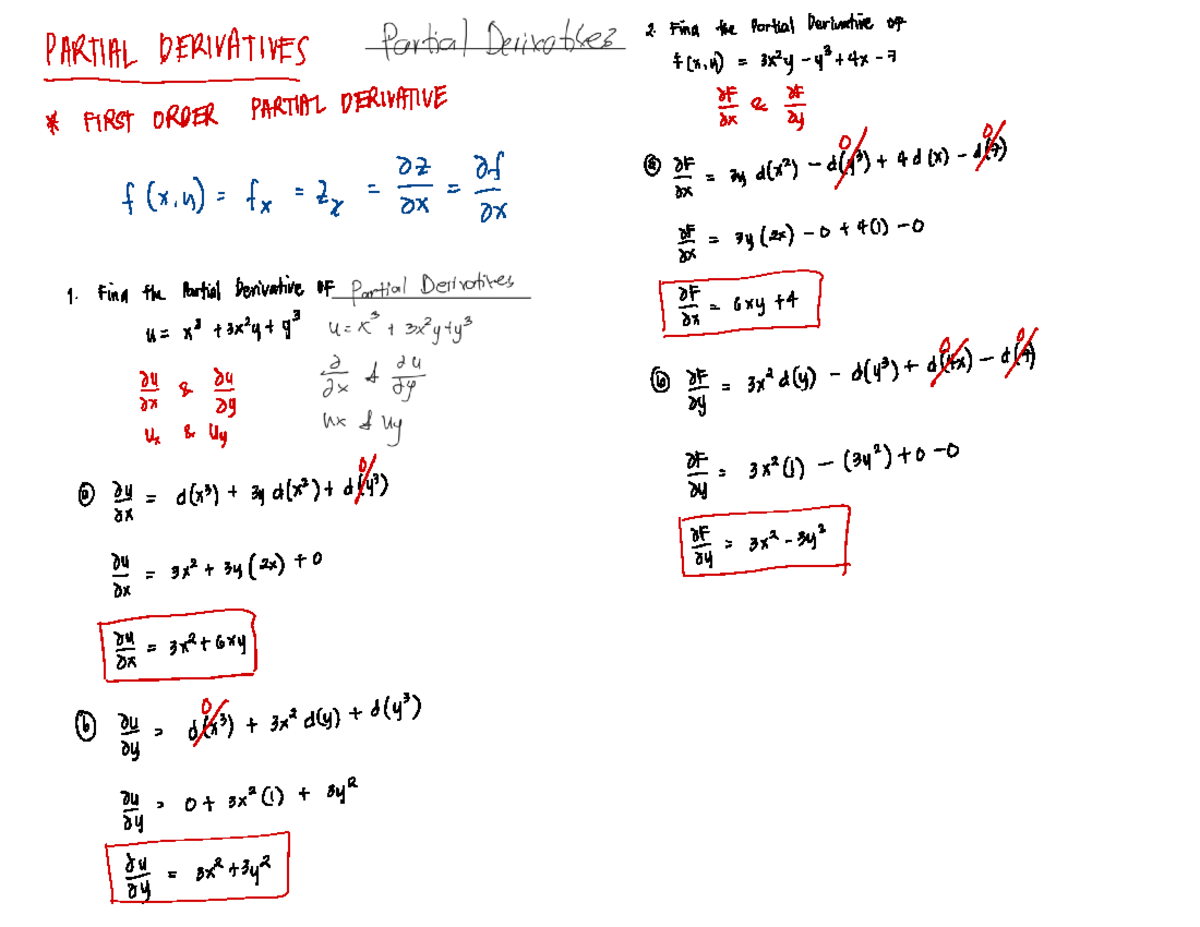 PARTIAL DERIVATIVES Partial Derivatives
* FIRST ORDER PARTIAL DERIVATIVE
f (x,y) = fx = zx = ∂z/∂x = ∂f/∂x
1. Find the Partial Derivative OF Partial Derivatives
u = x³ + 3x²y + y³ u = x³ + 3x²y + y³
∂u/∂x & ∂u/∂y ∂/∂x & ∂u/∂y
Ux & Uy ux & uy
ⓐ ∂u/∂x = d(x³) + 3y d(x²) + d(y³) 0
∂u/∂x = 3x² + 3y (2x) + 0
∂u/∂x = 3x² + 6xy
ⓑ ∂u/∂y = d(x³) 0 + 3x² d(y) + d(y³)
∂u/∂y = 0 + 3x² (1) + 3y²
∂u/∂y = 3x² + 3y²
2. Find the Partial Derivative of
f(x,y) = 3x²y - y³ + 4x - 7
∂F/∂x & ∂F/∂y
ⓐ ∂F/∂x = 3y d(x²) - d(y³) 0 + 4 d(x) - d(7) 0
∂F/∂x = 3y (2x) - 0 + 4(1) - 0
∂F/∂x = 6xy + 4
ⓑ ∂F/∂y = 3x² d(y) - d(y³) + d(4x) 0 - d(7) 0
∂F/∂y = 3x² (1) - (3y²) + 0 - 0
∂F/∂y = 3x² - 3y²